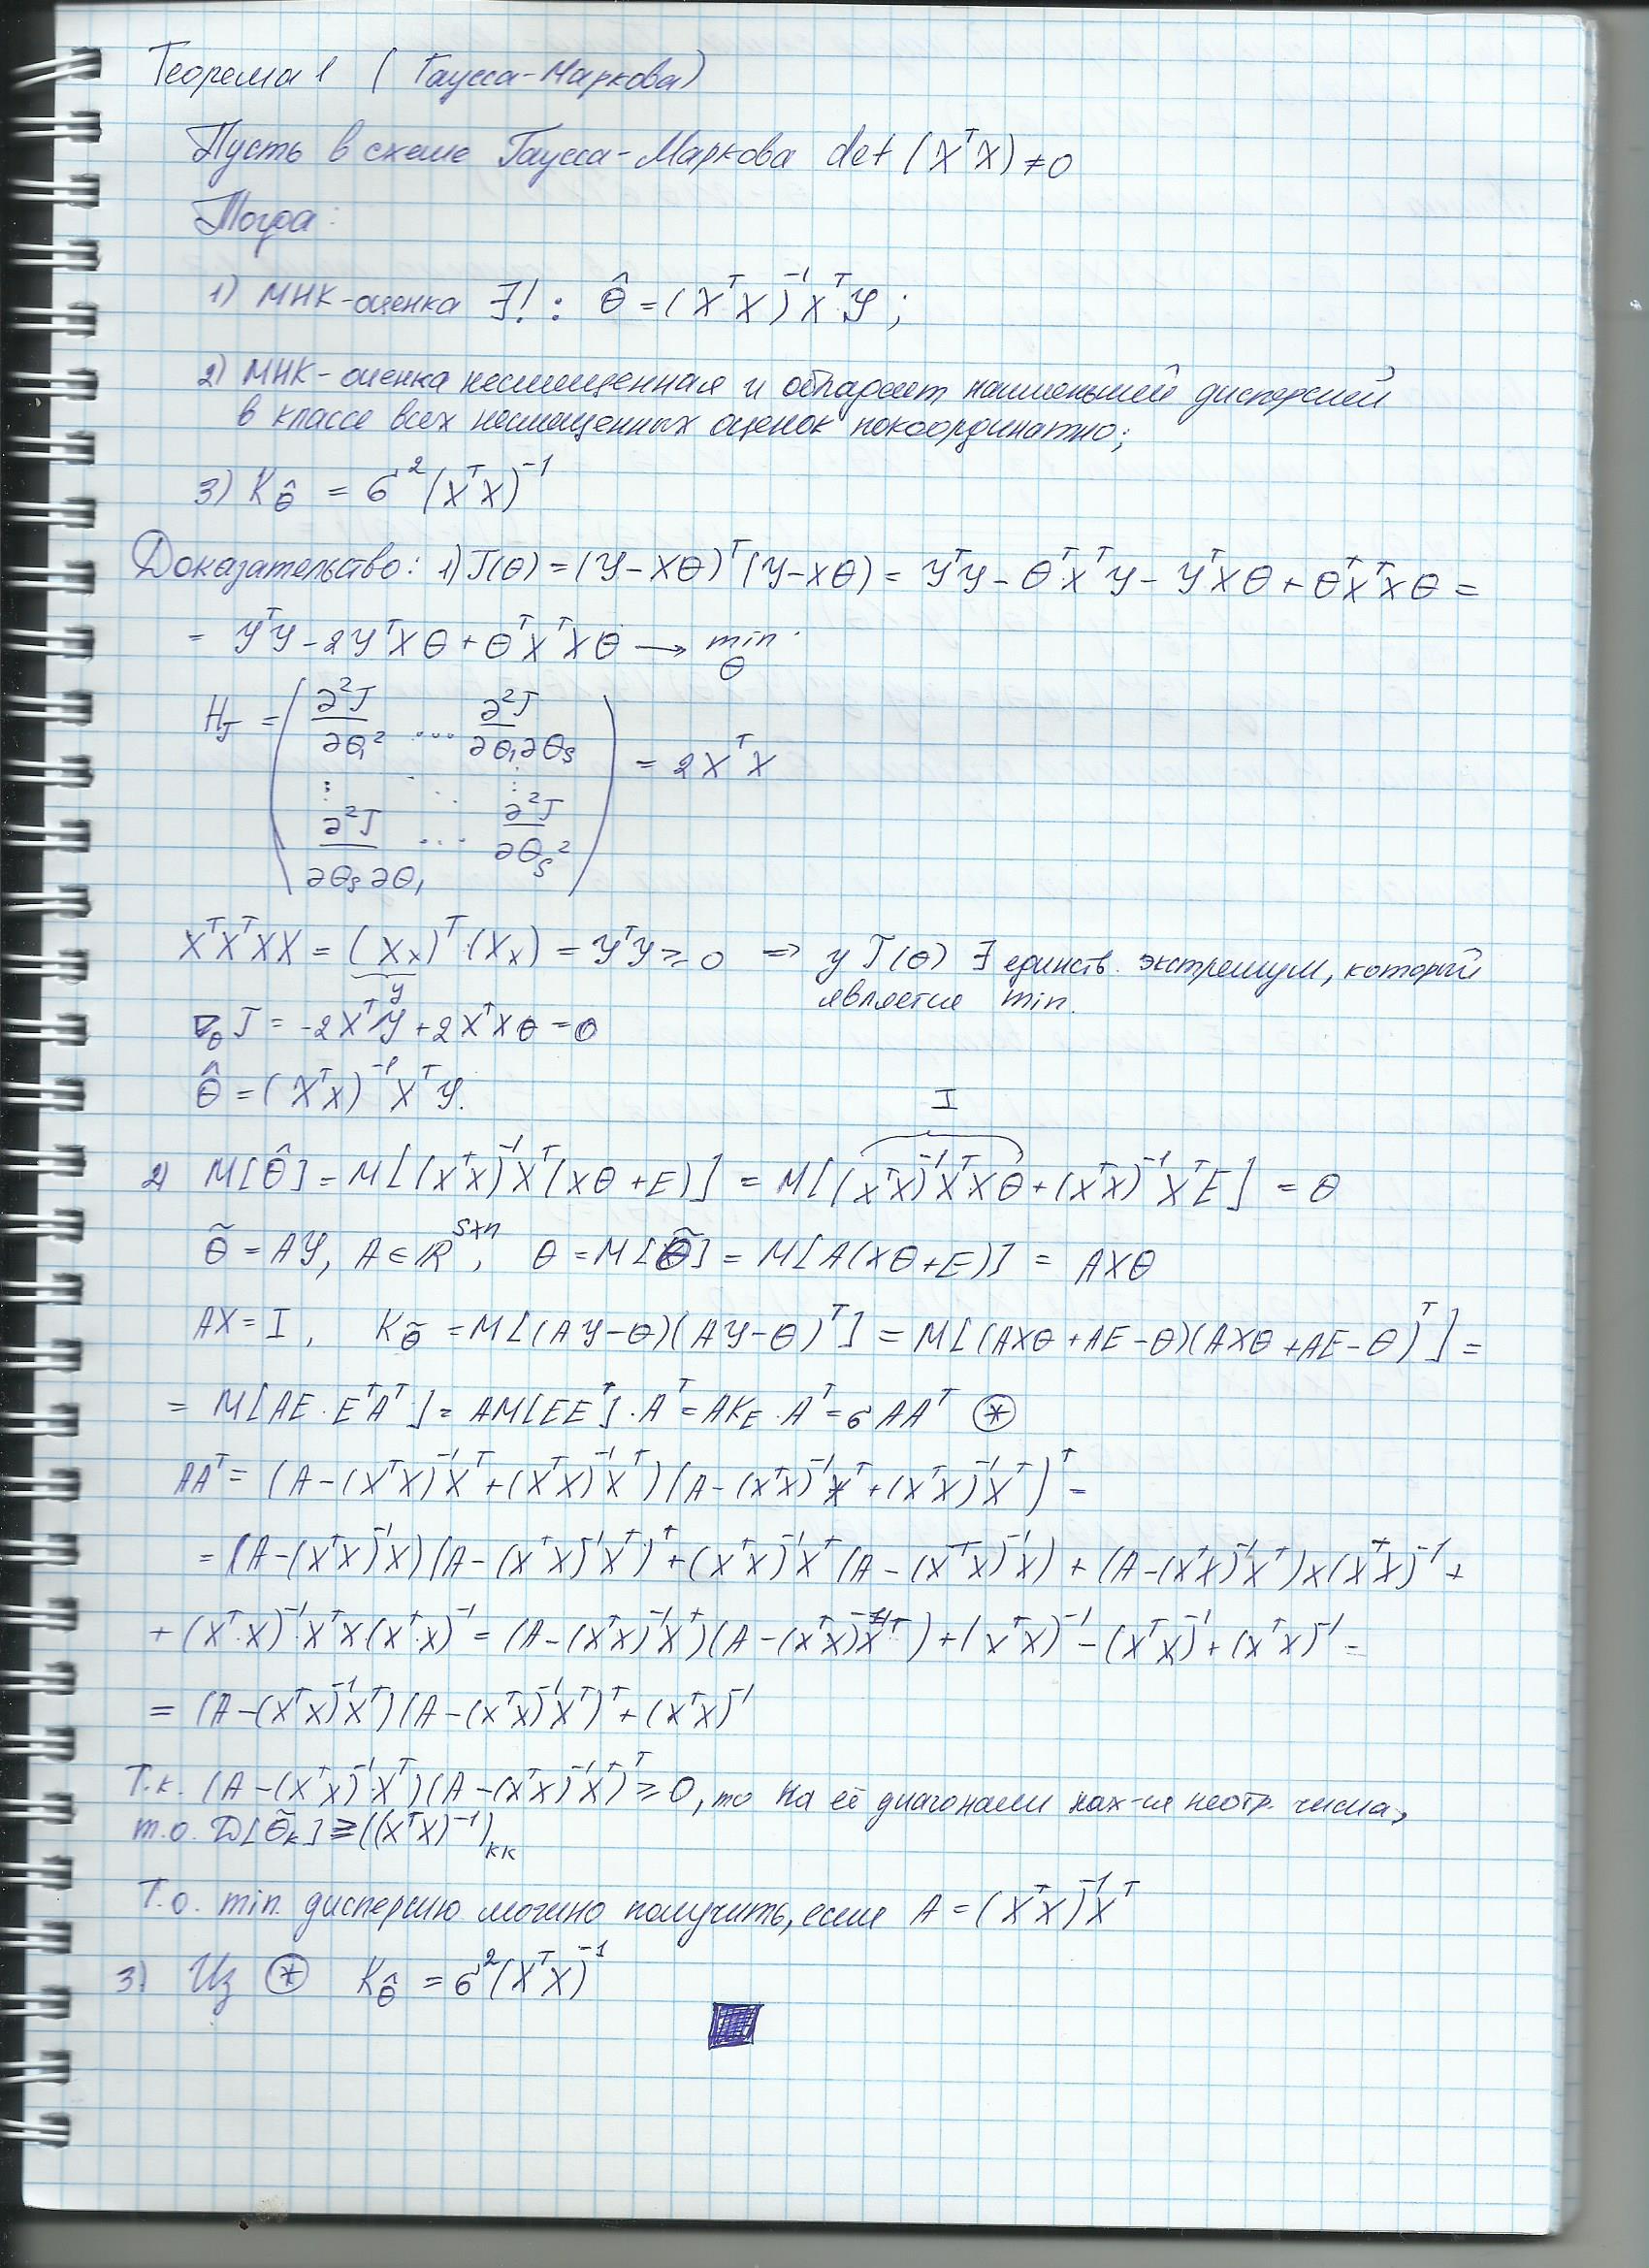 Теорема 1 (Гаусса-Маркова)
Пусть в схеме Гаусса-Маркова det (XᵀX) ≠ 0
Тогда:
1) МНК-оценка ∃! : θ̂ = (XᵀX)⁻¹XᵀY ;
2) МНК-оценка несмещенная и обладает наименьшей дисперсией
в классе всех несмещенных оценок покоординатно;
3) K_θ̂ = σ²(XᵀX)⁻¹
Доказательство: 1) J(θ) = (Y-Xθ)ᵀ(Y-Xθ) = YᵀY - θᵀXᵀY - YᵀXθ + θᵀXᵀXθ =
= YᵀY - 2YᵀXθ + θᵀXᵀXθ → min θ
H_J = ( ∂²J/∂θ₁² ... ∂²J/∂θ₁∂θₛ
⋮ ⋱ ⋮
∂²J/∂θₛ∂θ₁ ... ∂²J/∂θₛ² ) = 2XᵀX
XᵀXᵀXX = (Xx)ᵀ·(Xx) = YᵀY ≥ 0 => у J(θ) ∃ единств. экстремум, который
y является min.
∇_θ J = -2XᵀY + 2XᵀXθ = 0
θ̂ = (XᵀX)⁻¹XᵀY.
I
2) M[θ̂] = M[(XᵀX)⁻¹Xᵀ(Xθ+E)] = M[(XᵀX)⁻¹XᵀXθ + (XᵀX)⁻¹XᵀE] = θ
θ̃ = AY, A ∈ ℝˢˣⁿ, θ = M[θ̃] = M[A(Xθ+E)] = AXθ
AX = I, K_θ̃ = M[(AY-θ)(AY-θ)ᵀ] = M[(AXθ+AE-θ)(AXθ+AE-θ)ᵀ] =
= M[AE·EᵀAᵀ] = AM[EEᵀ]·Aᵀ = AK_E·Aᵀ = σAAᵀ (*)
AAᵀ = (A-(XᵀX)⁻¹Xᵀ+(XᵀX)⁻¹Xᵀ)(A-(XᵀX)⁻¹Xᵀ+(XᵀX)⁻¹Xᵀ)ᵀ =
= (A-(XᵀX)⁻¹X)(A-(XᵀX)⁻¹Xᵀ)ᵀ+(XᵀX)⁻¹Xᵀ(A-(XᵀX)⁻¹X) + (A-(XᵀX)⁻¹Xᵀ)X(XᵀX)⁻¹ +
+ (Xᵀ·X)⁻¹·XᵀX(Xᵀ·X)⁻¹ = (A-(XᵀX)⁻¹Xᵀ)(A-(XᵀX)X⁻¹ᵀ) + (XᵀX)⁻¹ - (XᵀX)⁻¹ + (XᵀX)⁻¹ =
= (A-(XᵀX)⁻¹Xᵀ)(A-(XᵀX)⁻¹Xᵀ)ᵀ + (XᵀX)⁻¹
Т.к. (A-(XᵀX)⁻¹·Xᵀ)(A-(XᵀX)⁻¹Xᵀ)ᵀ ≥ 0, то на её диагонали нах-ся неотр. числа,
т.о. D[θ̃ₖ] ≥ ((XᵀX)⁻¹)ₖₖ
Т.о. min. дисперсию можно получить, если A = (XᵀX)⁻¹Xᵀ
3) Из (*) K_θ̂ = σ²(XᵀX)⁻¹